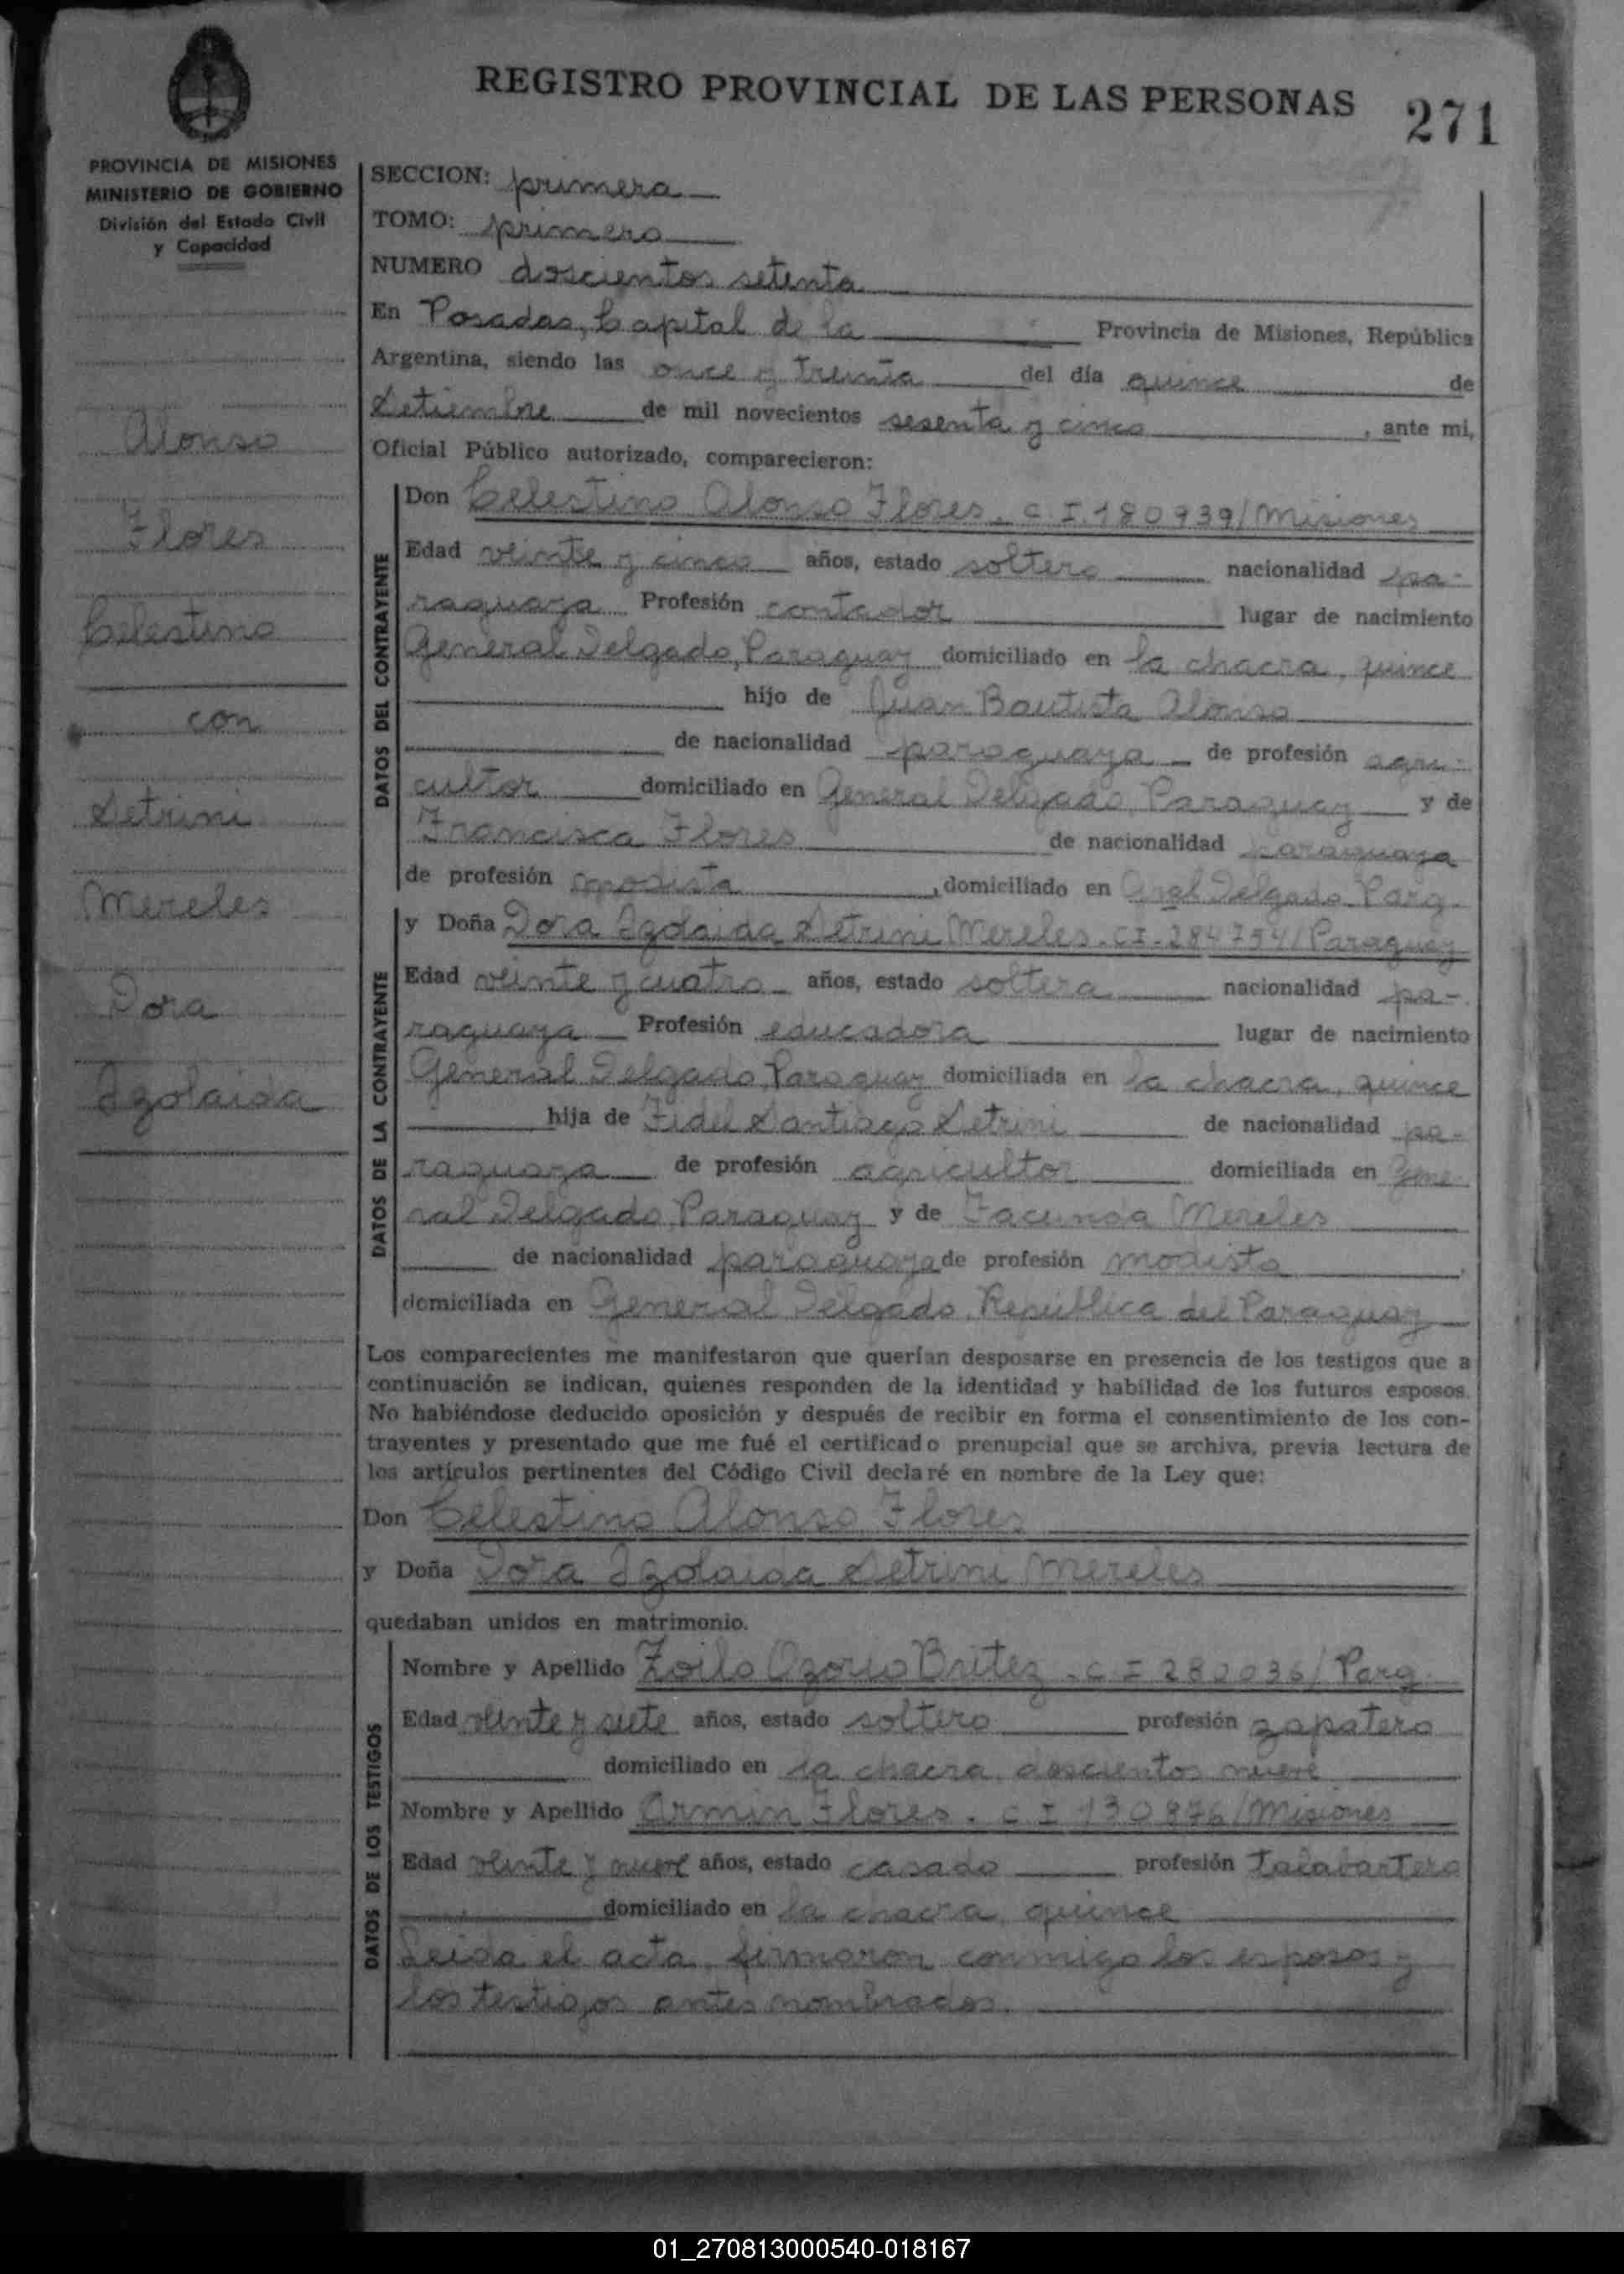 REGISTRO PROVINCIAL DE LAS PERSONAS 271
PROVINCIA DE MISIONES
MINISTERIO DE GOBIERNO
División del Estado Civil
y Capacidad
Alonso
Flores
Celestino
con
Setrini
Mereles
Dora
Izolaida
SECCION: primera
TOMO: primero
NUMERO doscientos setenta
En Posadas, Capital de la Provincia de Misiones, República
Argentina, siendo las once y treinta del día quince de
Setiembre de mil novecientos sesenta y cinco, ante mi,
Oficial Público autorizado, comparecieron:
DATOS DEL CONTRAYENTE
Don Celestino Alonso Flores. C.I. 180939/Misiones
Edad veinte y cinco años, estado soltero nacionalidad pa-
raguaya Profesión contador lugar de nacimiento
General Delgado, Paraguay domiciliado en la chacra, quince
hijo de Juan Bautista Alonso
de nacionalidad paraguaya de profesión agri-
cultor domiciliado en General Delgado, Paraguay y de
Francisca Flores de nacionalidad paraguaya
de profesión modista, domiciliado en Gral Delgado. Parg.
DATOS DE LA CONTRAYENTE
y Doña Dora Izolaida Setrini Mereles. CI. 284754/Paraguay
Edad veinte y cuatro años, estado soltera nacionalidad pa-
raguaya Profesión educadora lugar de nacimiento
General Delgado, Paraguay domiciliada en la chacra, quince
hija de Fidel Santiago Setrini de nacionalidad pa-
raguaya de profesión agricultor domiciliada en Gene-
ral Delgado, Paraguay y de Facunda Mereles
de nacionalidad paraguaya de profesión modista
domiciliada en General Delgado, República del Paraguay
Los comparecientes me manifestaron que querían desposarse en presencia de los testigos que a
continuación se indican, quienes responden de la identidad y habilidad de los futuros esposos.
No habiéndose deducido oposición y después de recibir en forma el consentimiento de los con-
trayentes y presentado que me fué el certificado prenupcial que se archiva, previa lectura de
los artículos pertinentes del Código Civil declaré en nombre de la Ley que:
Don Celestino Alonso Flores
y Doña Dora Izolaida Setrini Mereles
quedaban unidos en matrimonio.
DATOS DE LOS TESTIGOS
Nombre y Apellido Zoilo Ozorio Britez. C I 282036/Parg.
Edad veinte y siete años, estado soltero profesión zapatero
domiciliado en la chacra, doscientos nueve
Nombre y Apellido Armin Flores. C I 130876/Misiones
Edad veinte y nueve años, estado casado profesión talabartero
domiciliado en la chacra, quince
Leída el acta, firmaron conmigo los esposos y
los testigos antes nombrados.
01_270813000540-018167